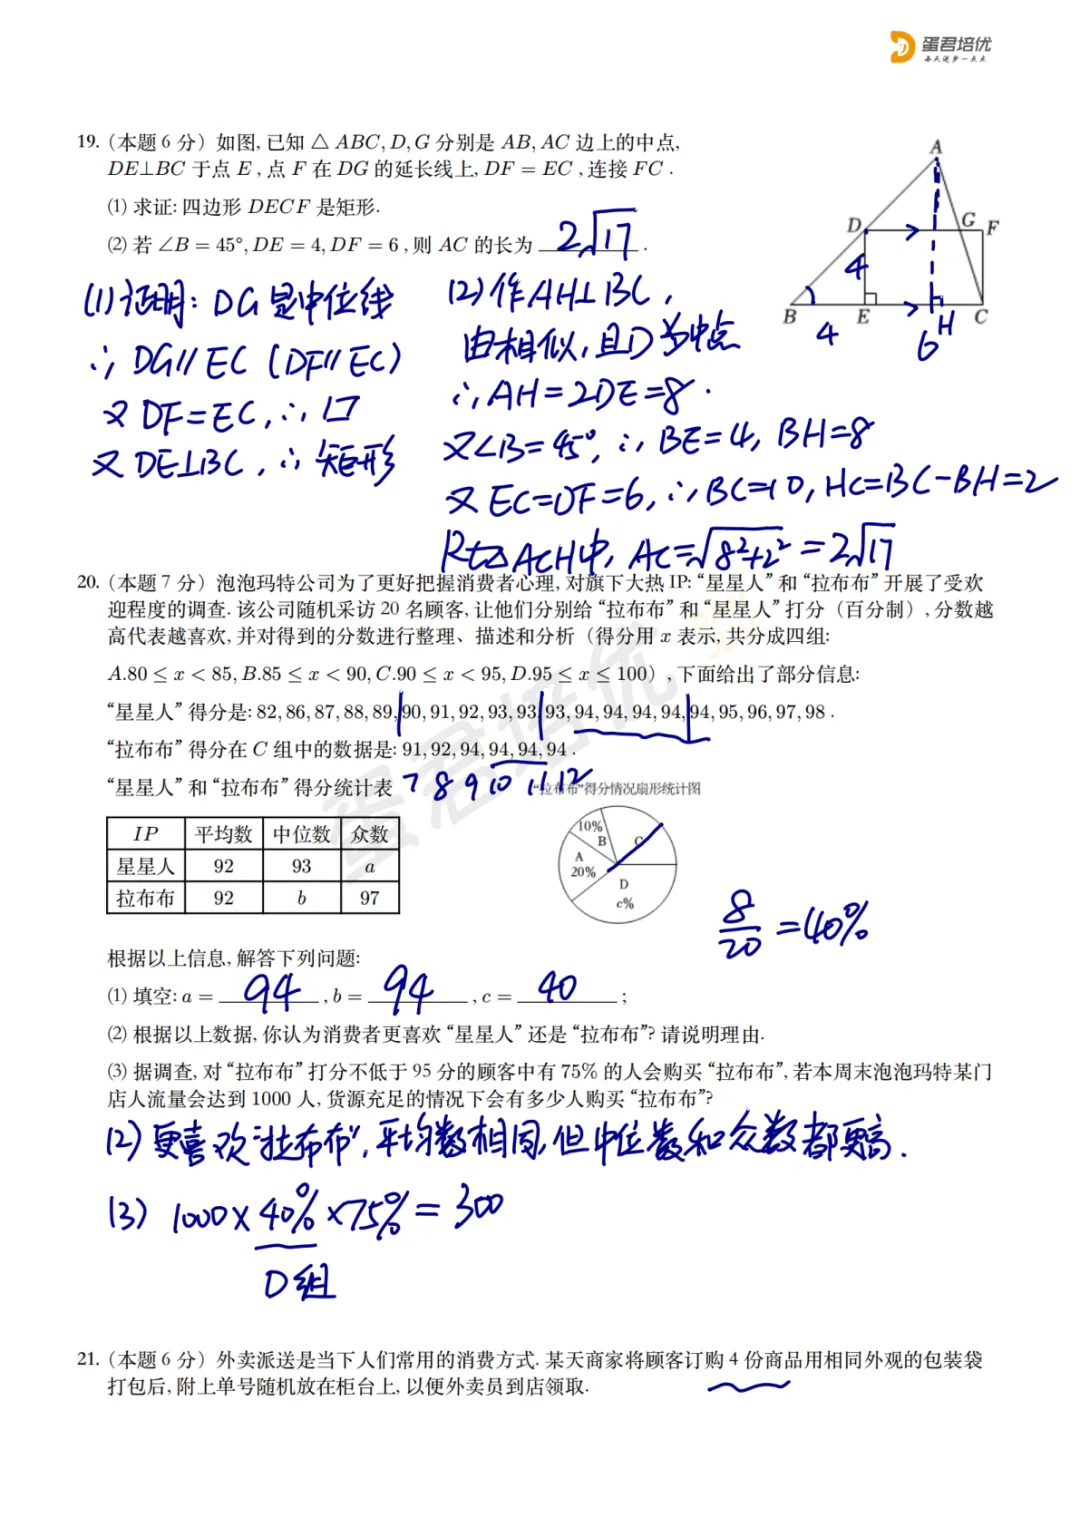 蛋君培优
每天进步一点点
19. (本题 6 分) 如图, 已知 △ ABC, D, G 分别是 AB, AC 边上的中点,
DE⊥BC 于点 E , 点 F 在 DG 的延长线上, DF = EC , 连接 FC .
(1) 求证: 四边形 DECF 是矩形.
(2) 若 ∠B = 45°, DE = 4, DF = 6 , 则 AC 的长为 2√17 .
A
D G F
4
B E H C
4 6
(1) 证明: DG是中位线
∴ DG∥EC (DF∥EC)
又 DF=EC, ∴ ▱
又 DE⊥BC, ∴ 矩形
(2) 作AH⊥BC,
由相似, 且D为中点
∴ AH=2DE=8.
又∠B=45°, ∴ BE=4, BH=8
又 EC=DF=6, ∴ BC=10, HC=BC-BH=2
Rt△ACH中, AC=√8²+2² =2√17
20. (本题 7 分) 泡泡玛特公司为了更好把握消费者心理, 对旗下大热 IP: “星星人” 和 “拉布布” 开展了受欢
迎程度的调查. 该公司随机采访 20 名顾客, 让他们分别给 “拉布布” 和 “星星人” 打分 (百分制) , 分数越
高代表越喜欢, 并对得到的分数进行整理、描述和分析 (得分用 x 表示, 共分成四组:
A.80 ≤ x < 85, B.85 ≤ x < 90, C.90 ≤ x < 95, D.95 ≤ x ≤ 100) , 下面给出了部分信息:
“星星人” 得分是: 82, 86, 87, 88, 89, 90, 91, 92, 93, 93, 93, 94, 94, 94, 94, 94, 95, 96, 97, 98 .
“拉布布” 得分在 C 组中的数据是: 91, 92, 94, 94, 94, 94 .
“星星人” 和 “拉布布” 得分统计表
7 8 9 10 11 12
“拉布布”得分情况扇形统计图
IP 平均数 中位数 众数
星星人 92 93 a
拉布布 92 b 97
10%
B C
A
20%
D
c%
8/20 =40%
蛋君培优
根据以上信息, 解答下列问题:
(1) 填空: a = 94 , b = 94 , c = 40 ;
(2) 根据以上数据, 你认为消费者更喜欢 “星星人” 还是 “拉布布”? 请说明理由.
(3) 据调查, 对 “拉布布” 打分不低于 95 分的顾客中有 75% 的人会购买 “拉布布”, 若本周末泡泡玛特某门
店人流量会达到 1000 人, 货源充足的情况下会有多少人购买 “拉布布”?
(2) 更喜欢“拉布布”, 平均数相同, 但中位数和众数都更高.
(3) 1000×40%×75%=300
D组
21. (本题 6 分) 外卖派送是当下人们常用的消费方式. 某天商家将顾客订购 4 份商品用相同外观的包装袋
打包后, 附上单号随机放在柜台上, 以便外卖员到店领取.